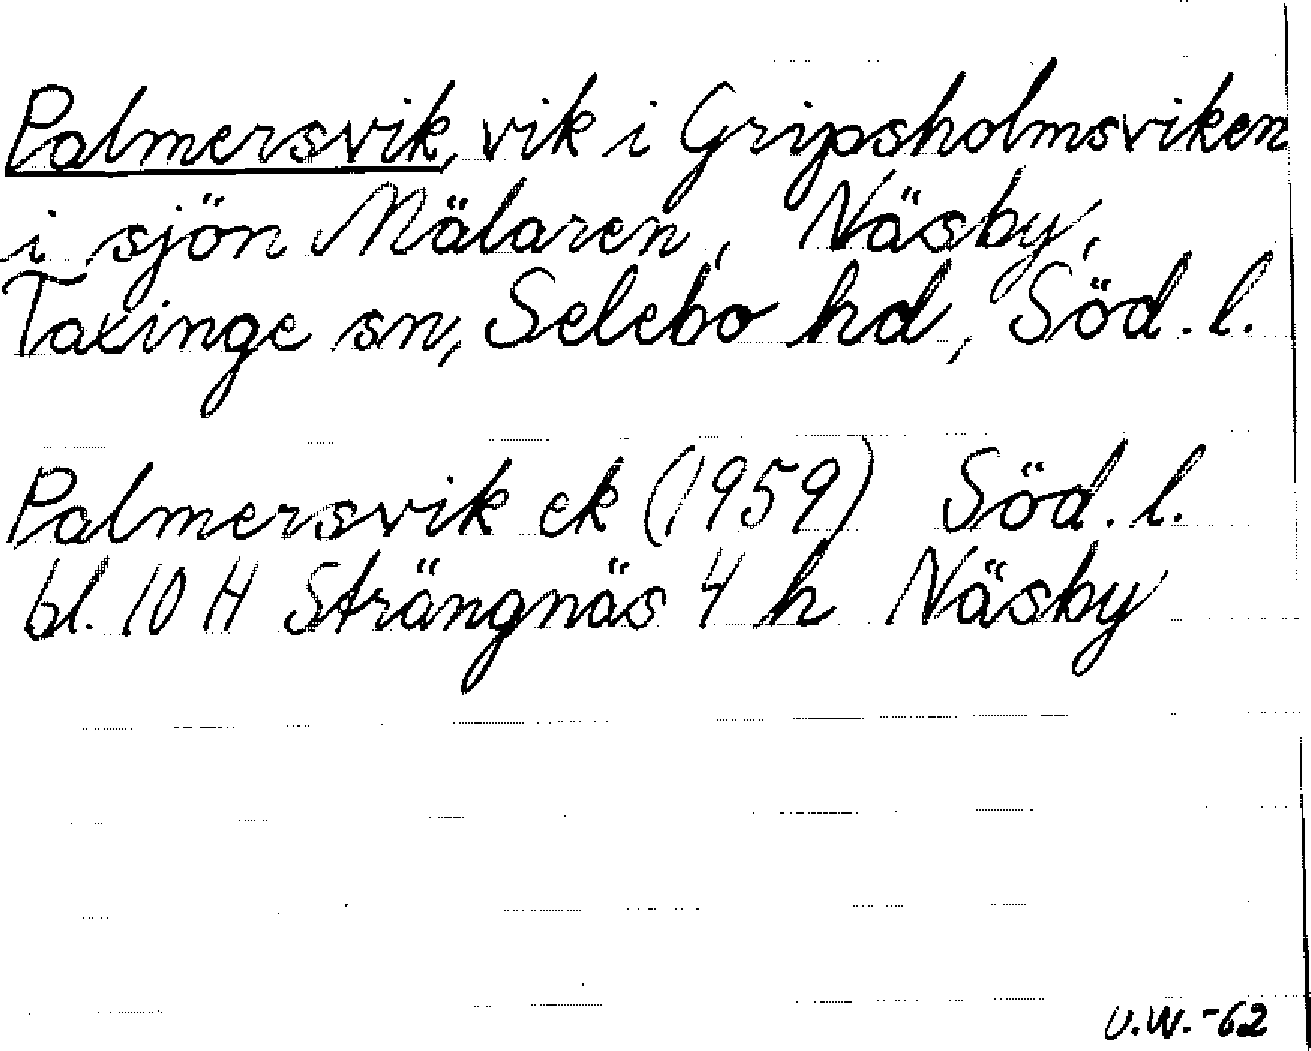 Palmersvik, vik i Gripsholmsviken
i sjön Mälaren, Näsby,
Taxinge sn, Selebo hd, Söd. l.
Palmersvik ek (1959) Söd. l.
bl. 10 H Strängnäs 4 h Näsby
U.W. -62